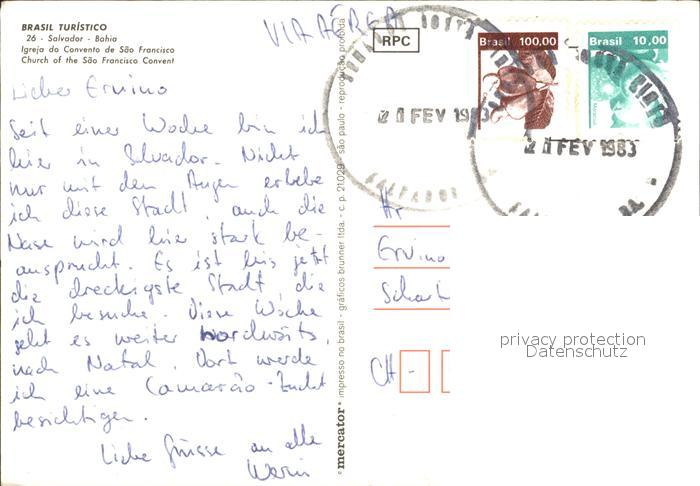 BRASIL TURÍSTICO
26 - Salvador - Bahia
Igreja do Convento de São Francisco
Church of the São Francisco Convent
VIA AÉREA
RPC
Brasil 100,00
Brasil 10,00
21 FEV 1983
21 FEV 1983
SALVADOR
Lieber Ervino
Seit einer Woche bin ich
hier in Salvador. Nicht
nur mit den Augen erlebe
ich diese Stadt, auch die
Nase wird hier stark be-
ansprucht. Es ist bis jetzt
die dreckigste Stadt, die
ich besuche. Diese Woche
geht es weiter nordwärts,
nach Natal. Dort werde
ich eine Camarão-Zucht
besichtigen.
Liebe Grüsse an alle
mercator® impresso no brasil - gráficos brunner ltda. - c.p. 21.029 - são paulo - reprodução proibida
Hr
Ervino
CH-
privacy protection
Datenschutz